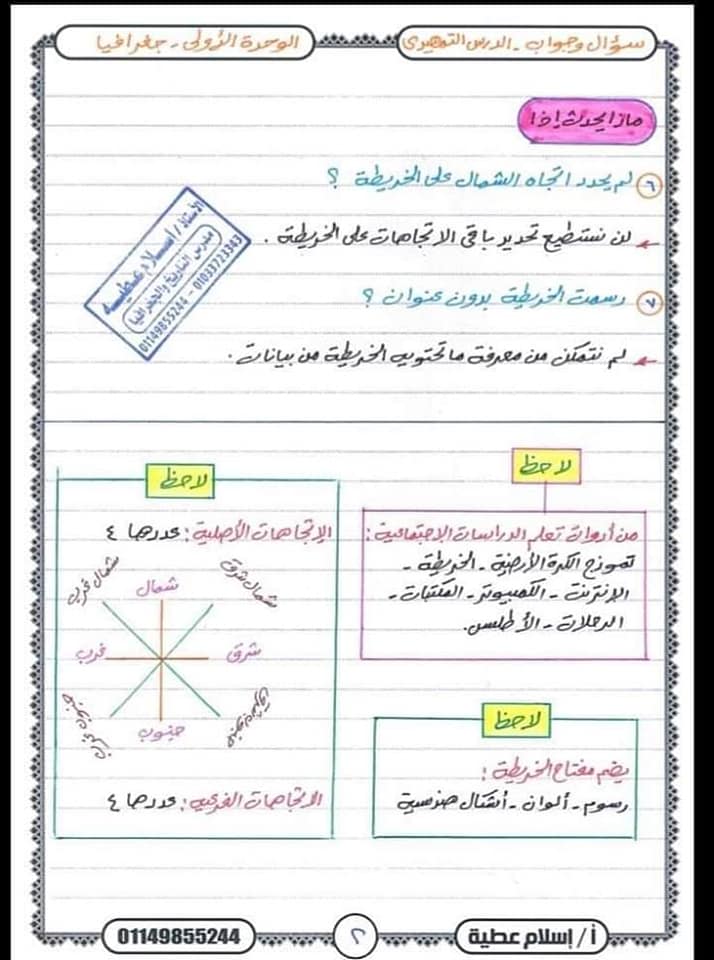 سؤال وجواب - الدرس التمهيدى
الوحدة الأولى - جغرافيا
ماذا يحدث إذا
٦ لم يحدد اتجاه الشمال على الخريطة ؟
لن نستطيع تحديد باقى الاتجاهات على الخريطة .
٧ رسمت الخريطة بدون عنوان ؟
لم نتمكن من معرفة ما تحتويه الخريطة من بيانات .
الأستاذ / إسلام عطية
مدرس التاريخ والجغرافيا
01149855244 - 01033723343
لاحظ
من أدوات تعلم الدراسات الاجتماعية :
نموذج الكرة الأرضية - الخريطة -
الإنترنت - الكمبيوتر - المكتبات -
الرحلات - الأطلس .
لاحظ
الإتجاهات الأصلية : عددها ٤
شمال شرق
شمال
شمال غرب
شرق
غرب
جنوب شرق
جنوب
جنوب غرب
الاتجاهات الفرعية : عددها ٤
لاحظ
يضم مفتاح الخريطة :
رسوم - ألوان - أشكال هندسية
أ / إسلام عطية
٢
01149855244